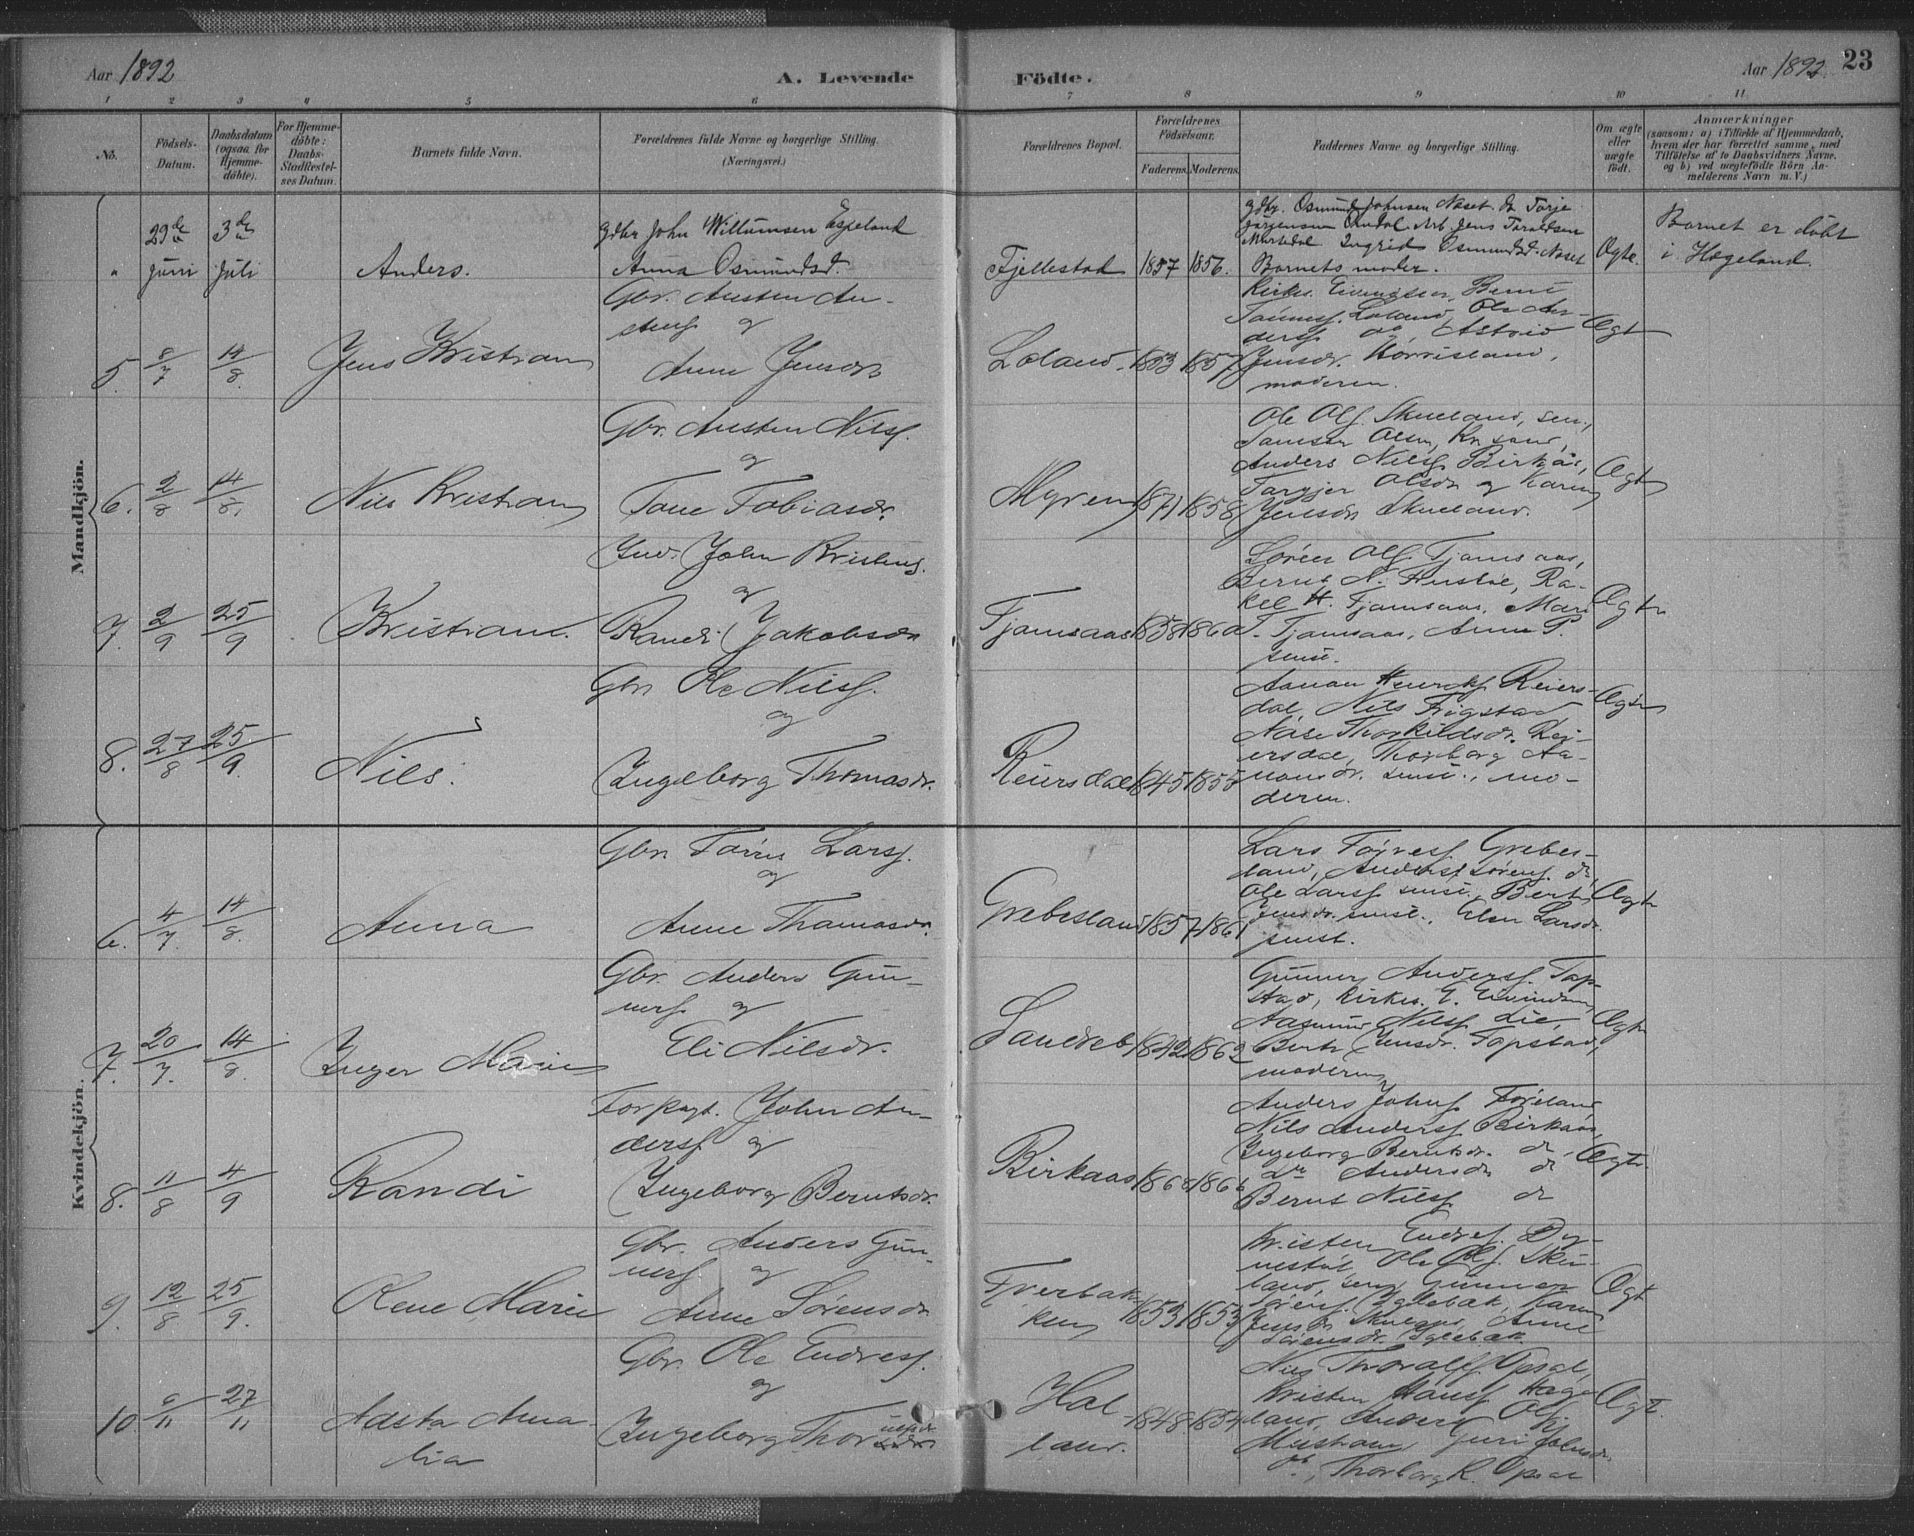 Aar 1892
A. Levende
Födte.
Aar 1892
23
1 2 3 4 5 6 7 8 9 10 11
No.
Födsels-
Datum.
Daabsdatum
(ogsaa for
Hjemme-
döbte).
For Hjemme-
döbte:
Daabs-
Stadfæstel-
ses Datum.
Barnets fulde Navn.
Forældrenes fulde Navne og borgerlige Stilling.
(Næringsvei.)
Forældrenes Bopæl.
Forældrenes
Födselsaar.
Faderens. Moderens.
Faddernes Navne og borgerlige Stilling.
Om ægte
eller
uægte
födt.
Anmærkninger
(saasom: a) i Tilfælde af Hjemmedaab,
hvem der har forrettet samme, med
Tilföielse af to Daabsvidners Navne,
og b) ved uægtefödte Börn An-
melderens Navn m. V.)
Mandkjön.
29de 3de
Juni Juli
Anders.
Gdbr John Willumsen Espeland
Anna Osmundsd.
Fjellestad
1857 1856.
Gdbr. Osmund Johnsen Naset. do Torje
Jörgensen Omdal. Arb. Jens Taraldsen
Mortedal Ingrid Osmundsd. Naset
Barnets moder.
Ægte.
Barnet er döbt
i Hægeland.
5. 8/7 14/8
Jens Kristian
Gbr. Austen Au-
stens. og
Anne Jensdr
Loland.
1853 1857
Kirkes. Eivindsen, Bernt
Tønnes. Loland, Ole An-
ders. og Astrid
Jensdr. Hørrisland,
moderen.
Ægte
6. 2/8 14/8.
Nils Kristian
Gbr. Austen Nils.
og
Tone Tobiasdr.
Myren
1871 1858
Ole Ols. Skueland, sen.,
Olsen, Kr.sand,
Anders Nils. Birkås,
Olsdr og Karen
Jensdr Skueland.
Ægte
7. 2/9 25/9
Kristian.
Ind. John Kristens.
og
Randi Jakobsdr
Tjamsaas
1858 1860
Søren Ols. Tjamsaas,
Bernt N. Hustøl, Ra-
kel H. Tjamsaas, Mari
T. Tjamsaas, Anne P.
senst.
Ægte
8. 27/8 25/9.
Nils.
Gbr. Ole Nils.
og
Ingeborg Thomasdr.
Reiersdal
1845 1855
Aanon Henriks. Reiers-
dal, Nils Frigstad
Åse Thorkildsdr. Rei-
ersdal, Thorborg Aa-
nonsdr. senst., mo-
deren.
Ægte
Kvindekjön.
6. 4/7 14/8.
Anna
Gbr. Lars.
og
Anne Thomasdr.
Grebesland
1857 1861
Lars Grebes-
land, Anders Sørens. do,
Ole Lars. senst., Berte
Jensdr. senst., Elen Larsdr.
senst.
Ægte
7. 20/7. 14/8.
Inger Marie
Gbr. Anders Gun-
ners. og
Eli Nilsdr.
Sandreb
1842 1862
Gunner Anders. Top-
stad, Kirkes. E. Eivindsen,
Aasmund Nils. Lie,
Berte Jensdr. Topstad,
moderen
Ægte
8. 11/8 4/9
Randi
Forpagt. John An-
ders. og
Ingeborg Berntsdr.
Birkaas
1868 1866
Anders Johns. Føreland
Nils Anders. Birkaas,
Ingeborg Berntsdr. do,
do Andersdr do
Bernt Nils. do
Ægte.
9. 12/8 25/9.
Olene Marie
Gbr. Anders Gun-
ners. og
Anne Sørensdr
Tverbak-
ken
1853 1853
Kristen Endres. Dy-
nestøl, Ole Ols. Skue-
land, sen., Gunner
Sørens. Iglebæk, Karen
Jensdr. Skueland, Anne
Sørensdr. Iglebæk.
Ægte
10 9/11 27/11
Adsta Ama
lia
Gbr. Ole Endres.
og
Ingeborg Thor
Hal
land.
1848 1854
Nils Thoralfs. Opsal,
Kristen Hans. Hæge
land, Anders Ols.
Guri Johnsdr.
do, Thorborg K. Opsal
Ægte.